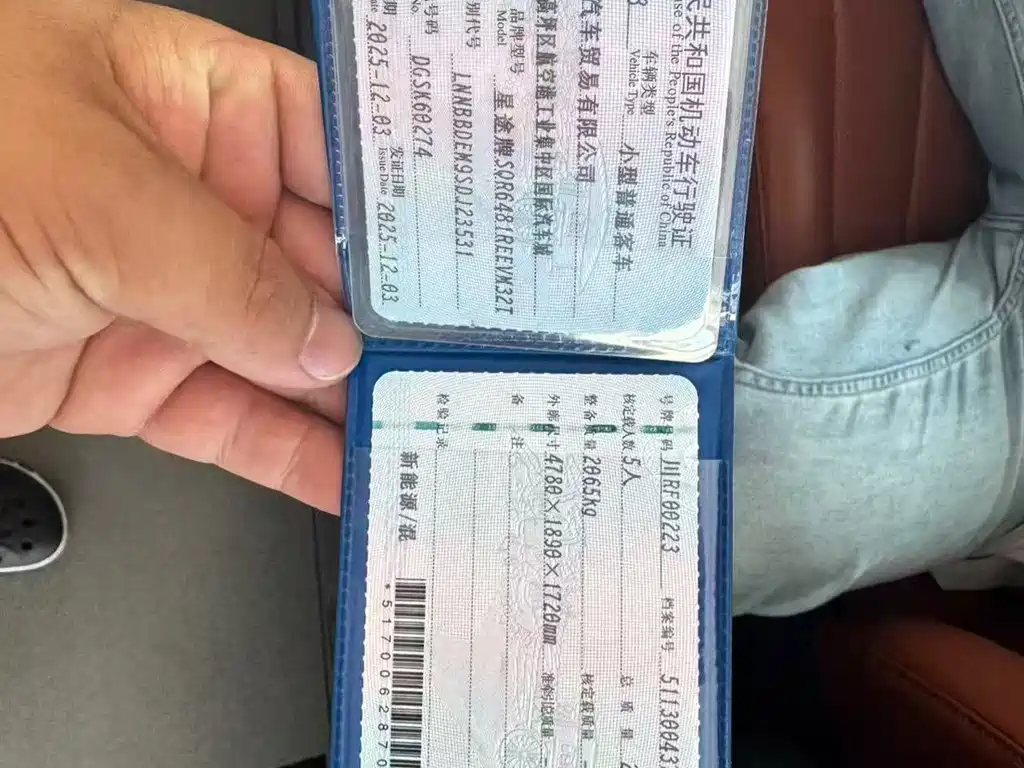 民共和国机动车行驶证
nse of the People's Republic of China
车辆类型 小型普通客车
Vehicle Type
汽车贸易有限公司
高坪区航空港工业集中区国际汽车城
品牌型号 星途牌SQR6481REEVM32I
Model
别代号 LNNBBDEM9SDJ23531
号码 DGSK60274
No.
期 2025-12-03 发证日期 2025-12-03
Issue Date
号牌号码 川RF00223 档案编号 51130043
核定载人数 5人 总质量 2
整备质量 2065kg 核定载质量
外廓尺寸 4780×1890×1720mm 准牵引总质量
备注
检验记录
新能源/混
*5170062870